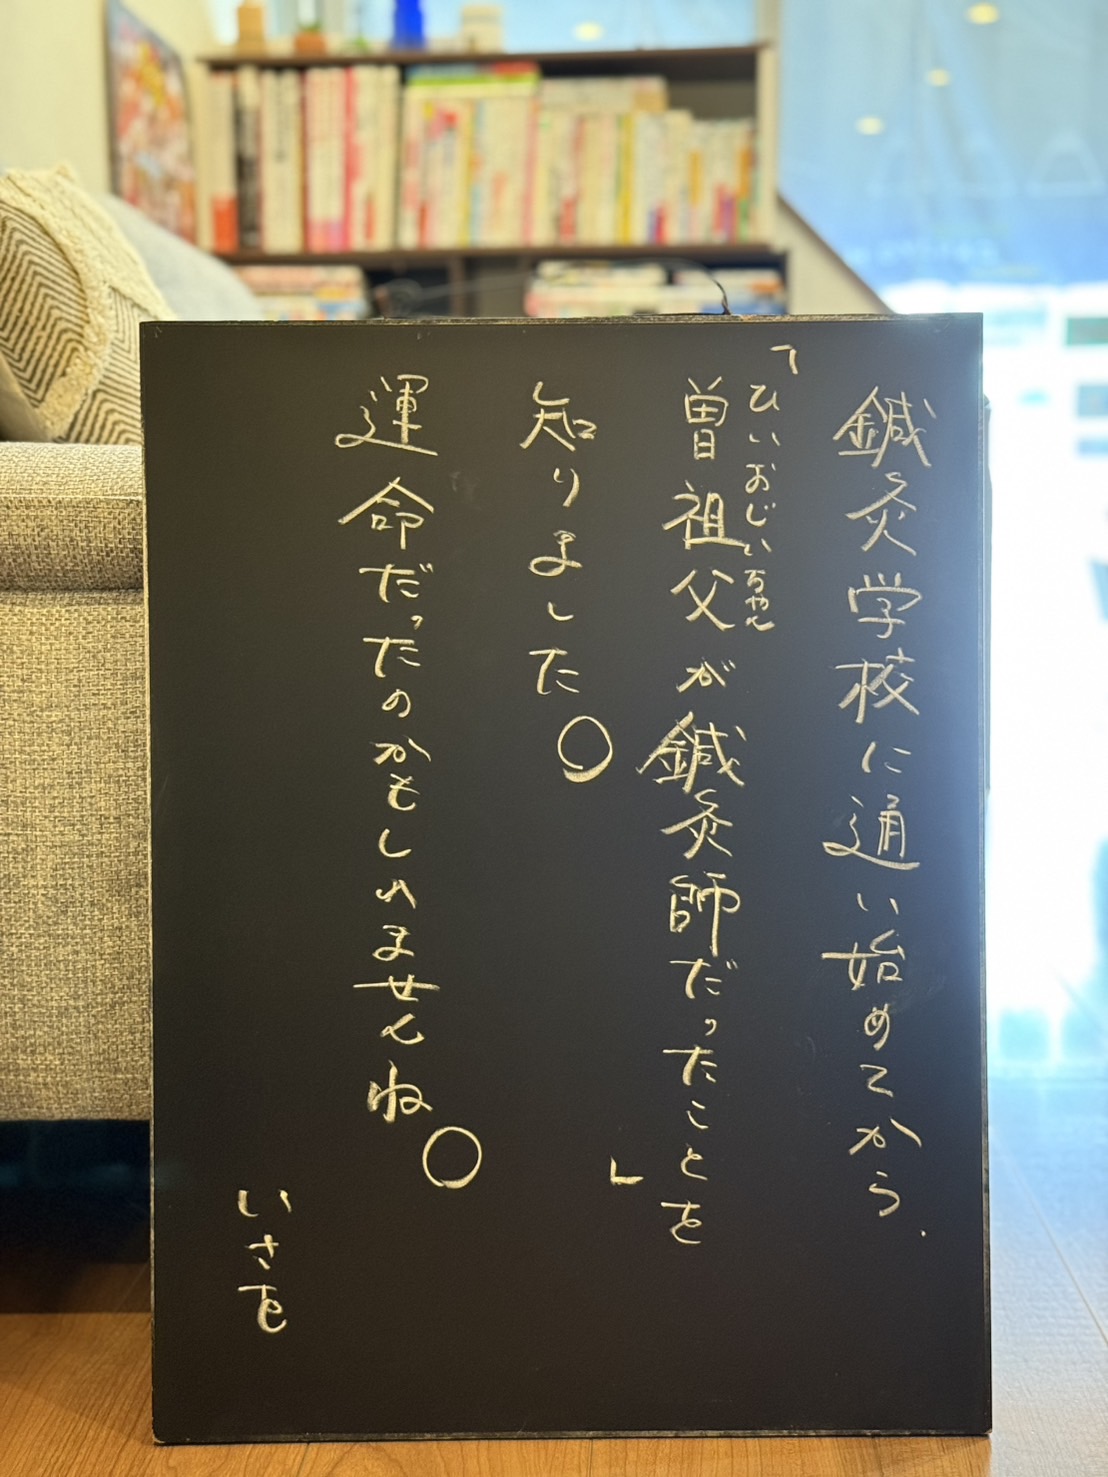 鍼灸学校に通い始めてから、
「曽祖父が鍼灸師だったことを」
ひいおじいちゃん
知りました。
運命だったのかもしれませんね。
いさを